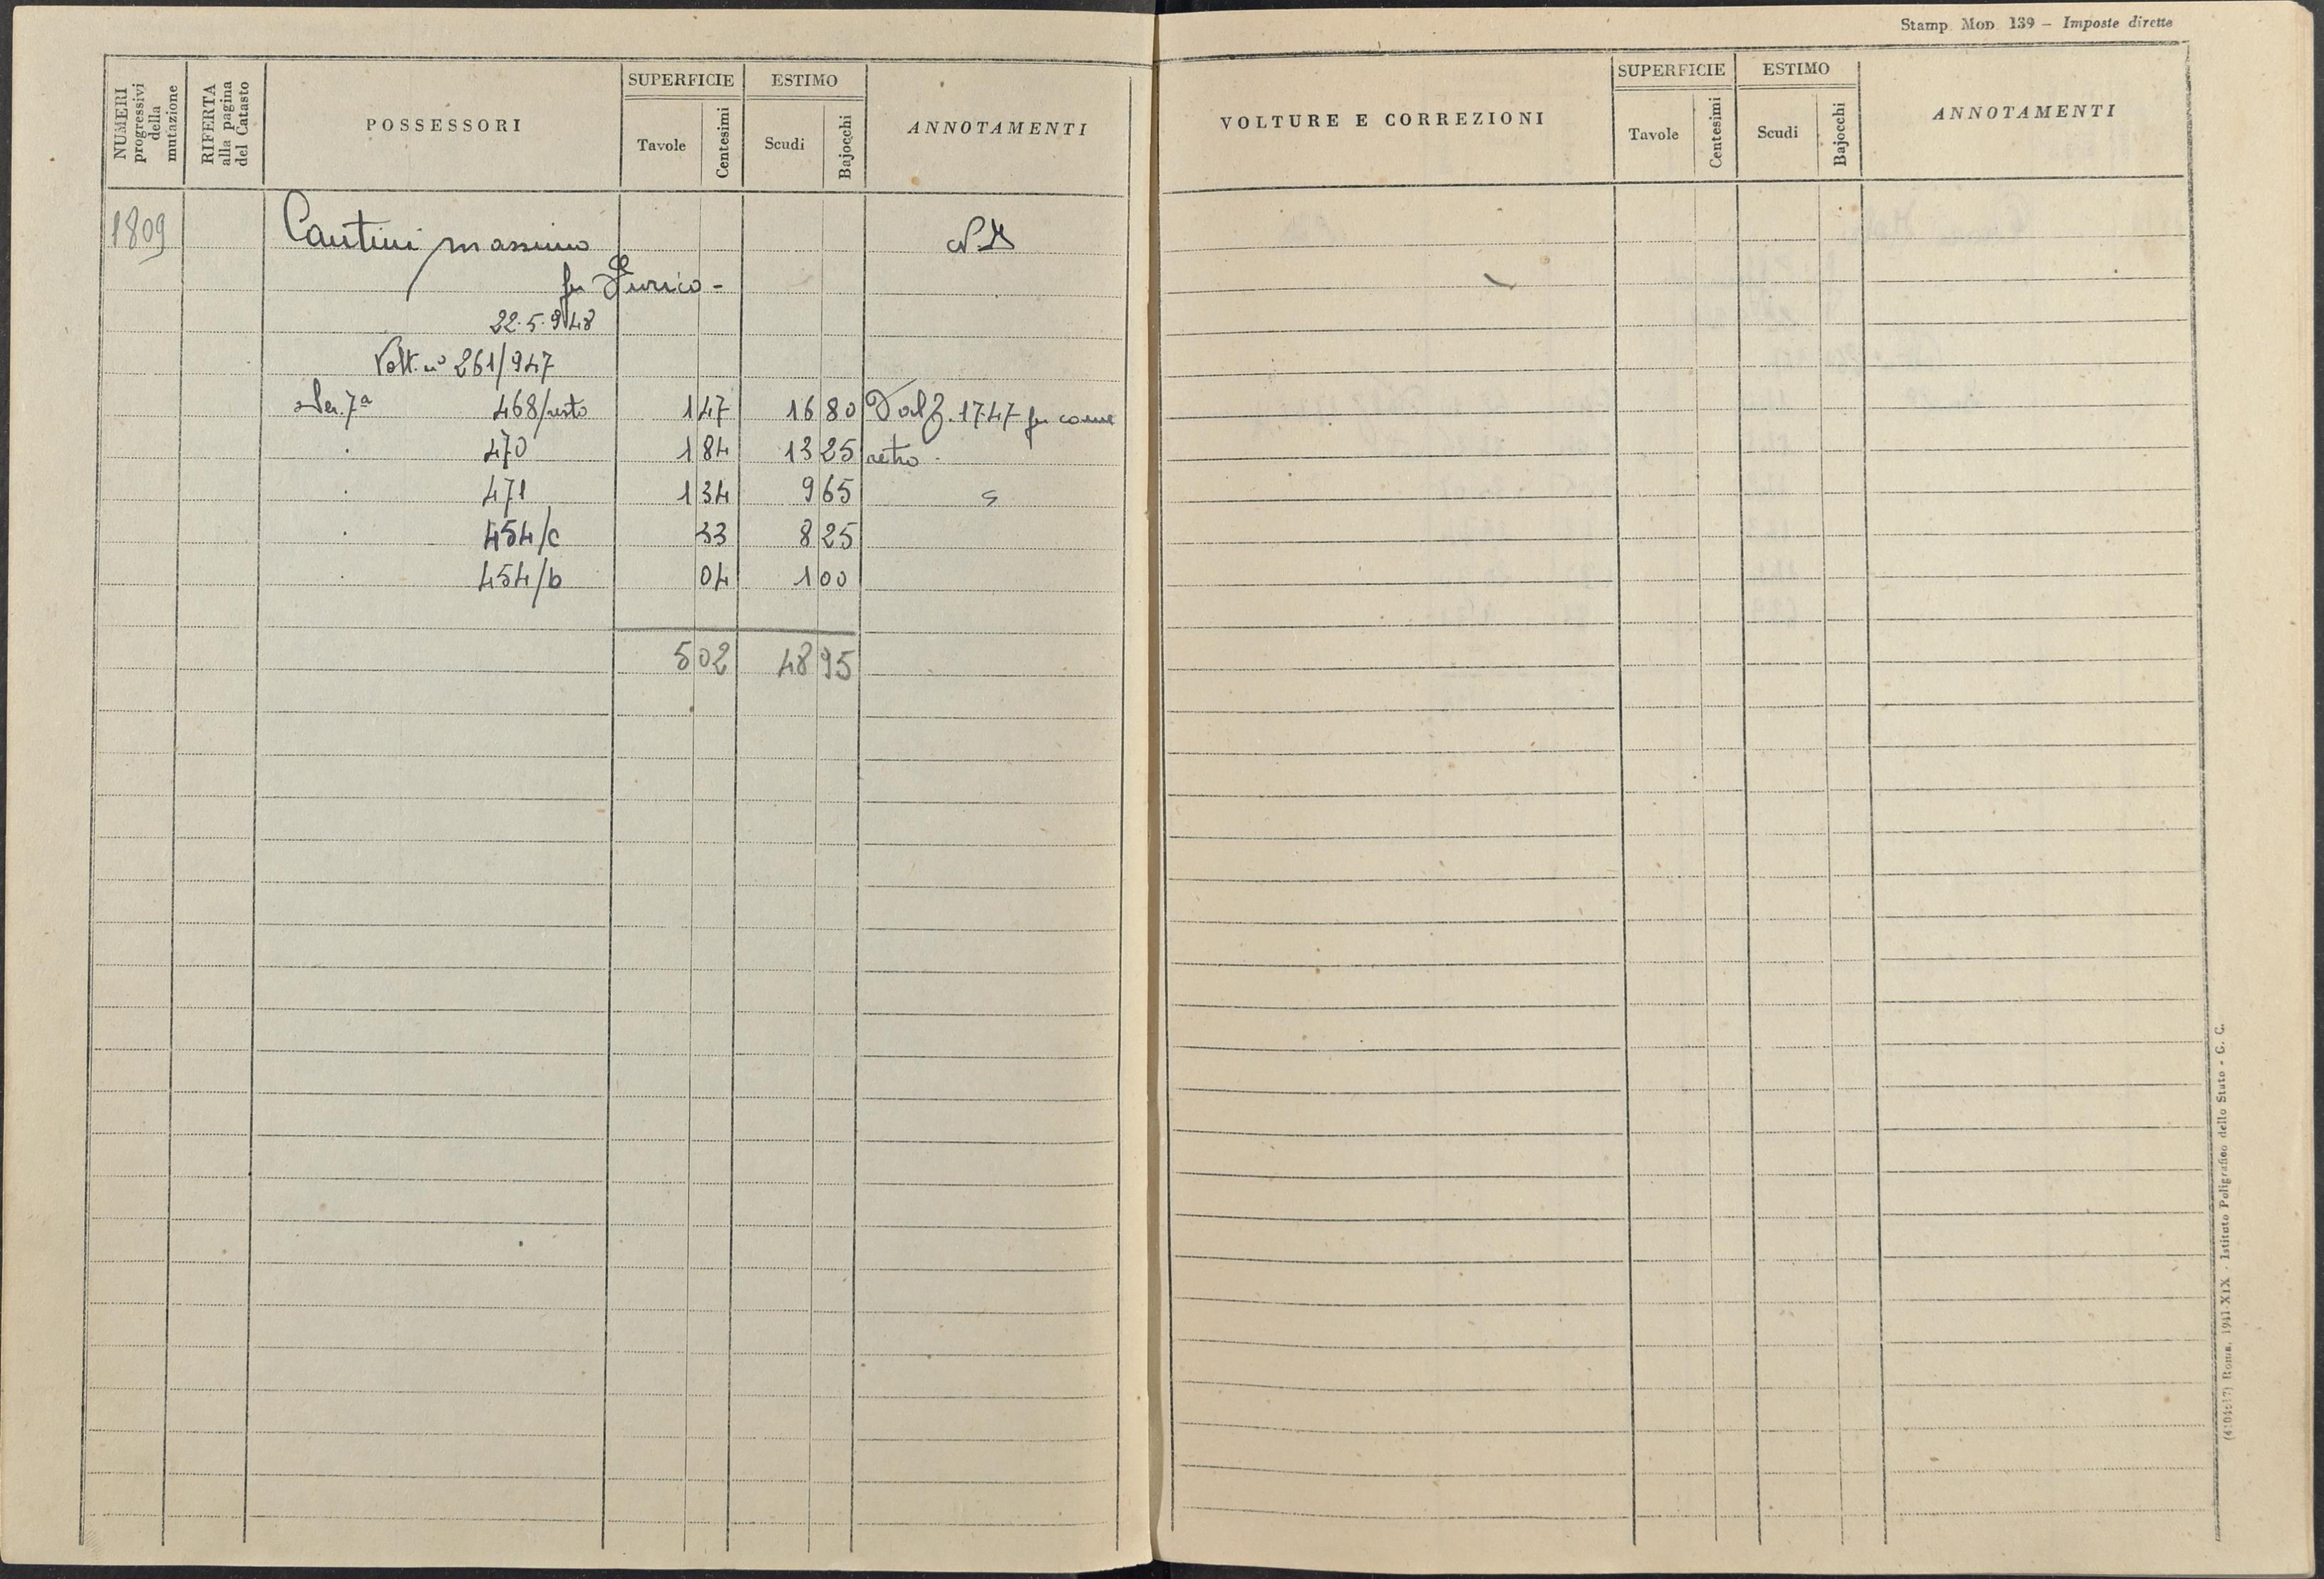 NUMERI progressivi della mutazione
RIFERTA alla pagina del Catasto
POSSESSORI
SUPERFICIE
Tavole
Centesimi
ESTIMO
Scudi
Bajocchi
ANNOTAMENTI
1809
Cantini Massimo
fu Enrico -
22.5.948
Volt. n° 261/947
Sez. 7ª 468/resto 1 47 16 80 Dal 1747 fu come
470 1 84 13 25 retro.
471 1 34 9 65
454/c 33 8 25
454/b 04 1 00
5 02 48 95
Stamp. Mod 139 – Imposte dirette
VOLTURE E CORREZIONI
SUPERFICIE
Tavole
Centesimi
ESTIMO
Scudi
Bajocchi
ANNOTAMENTI
Roma, 1941-XIX - Istituto Poligrafico dello Stato - G. C.